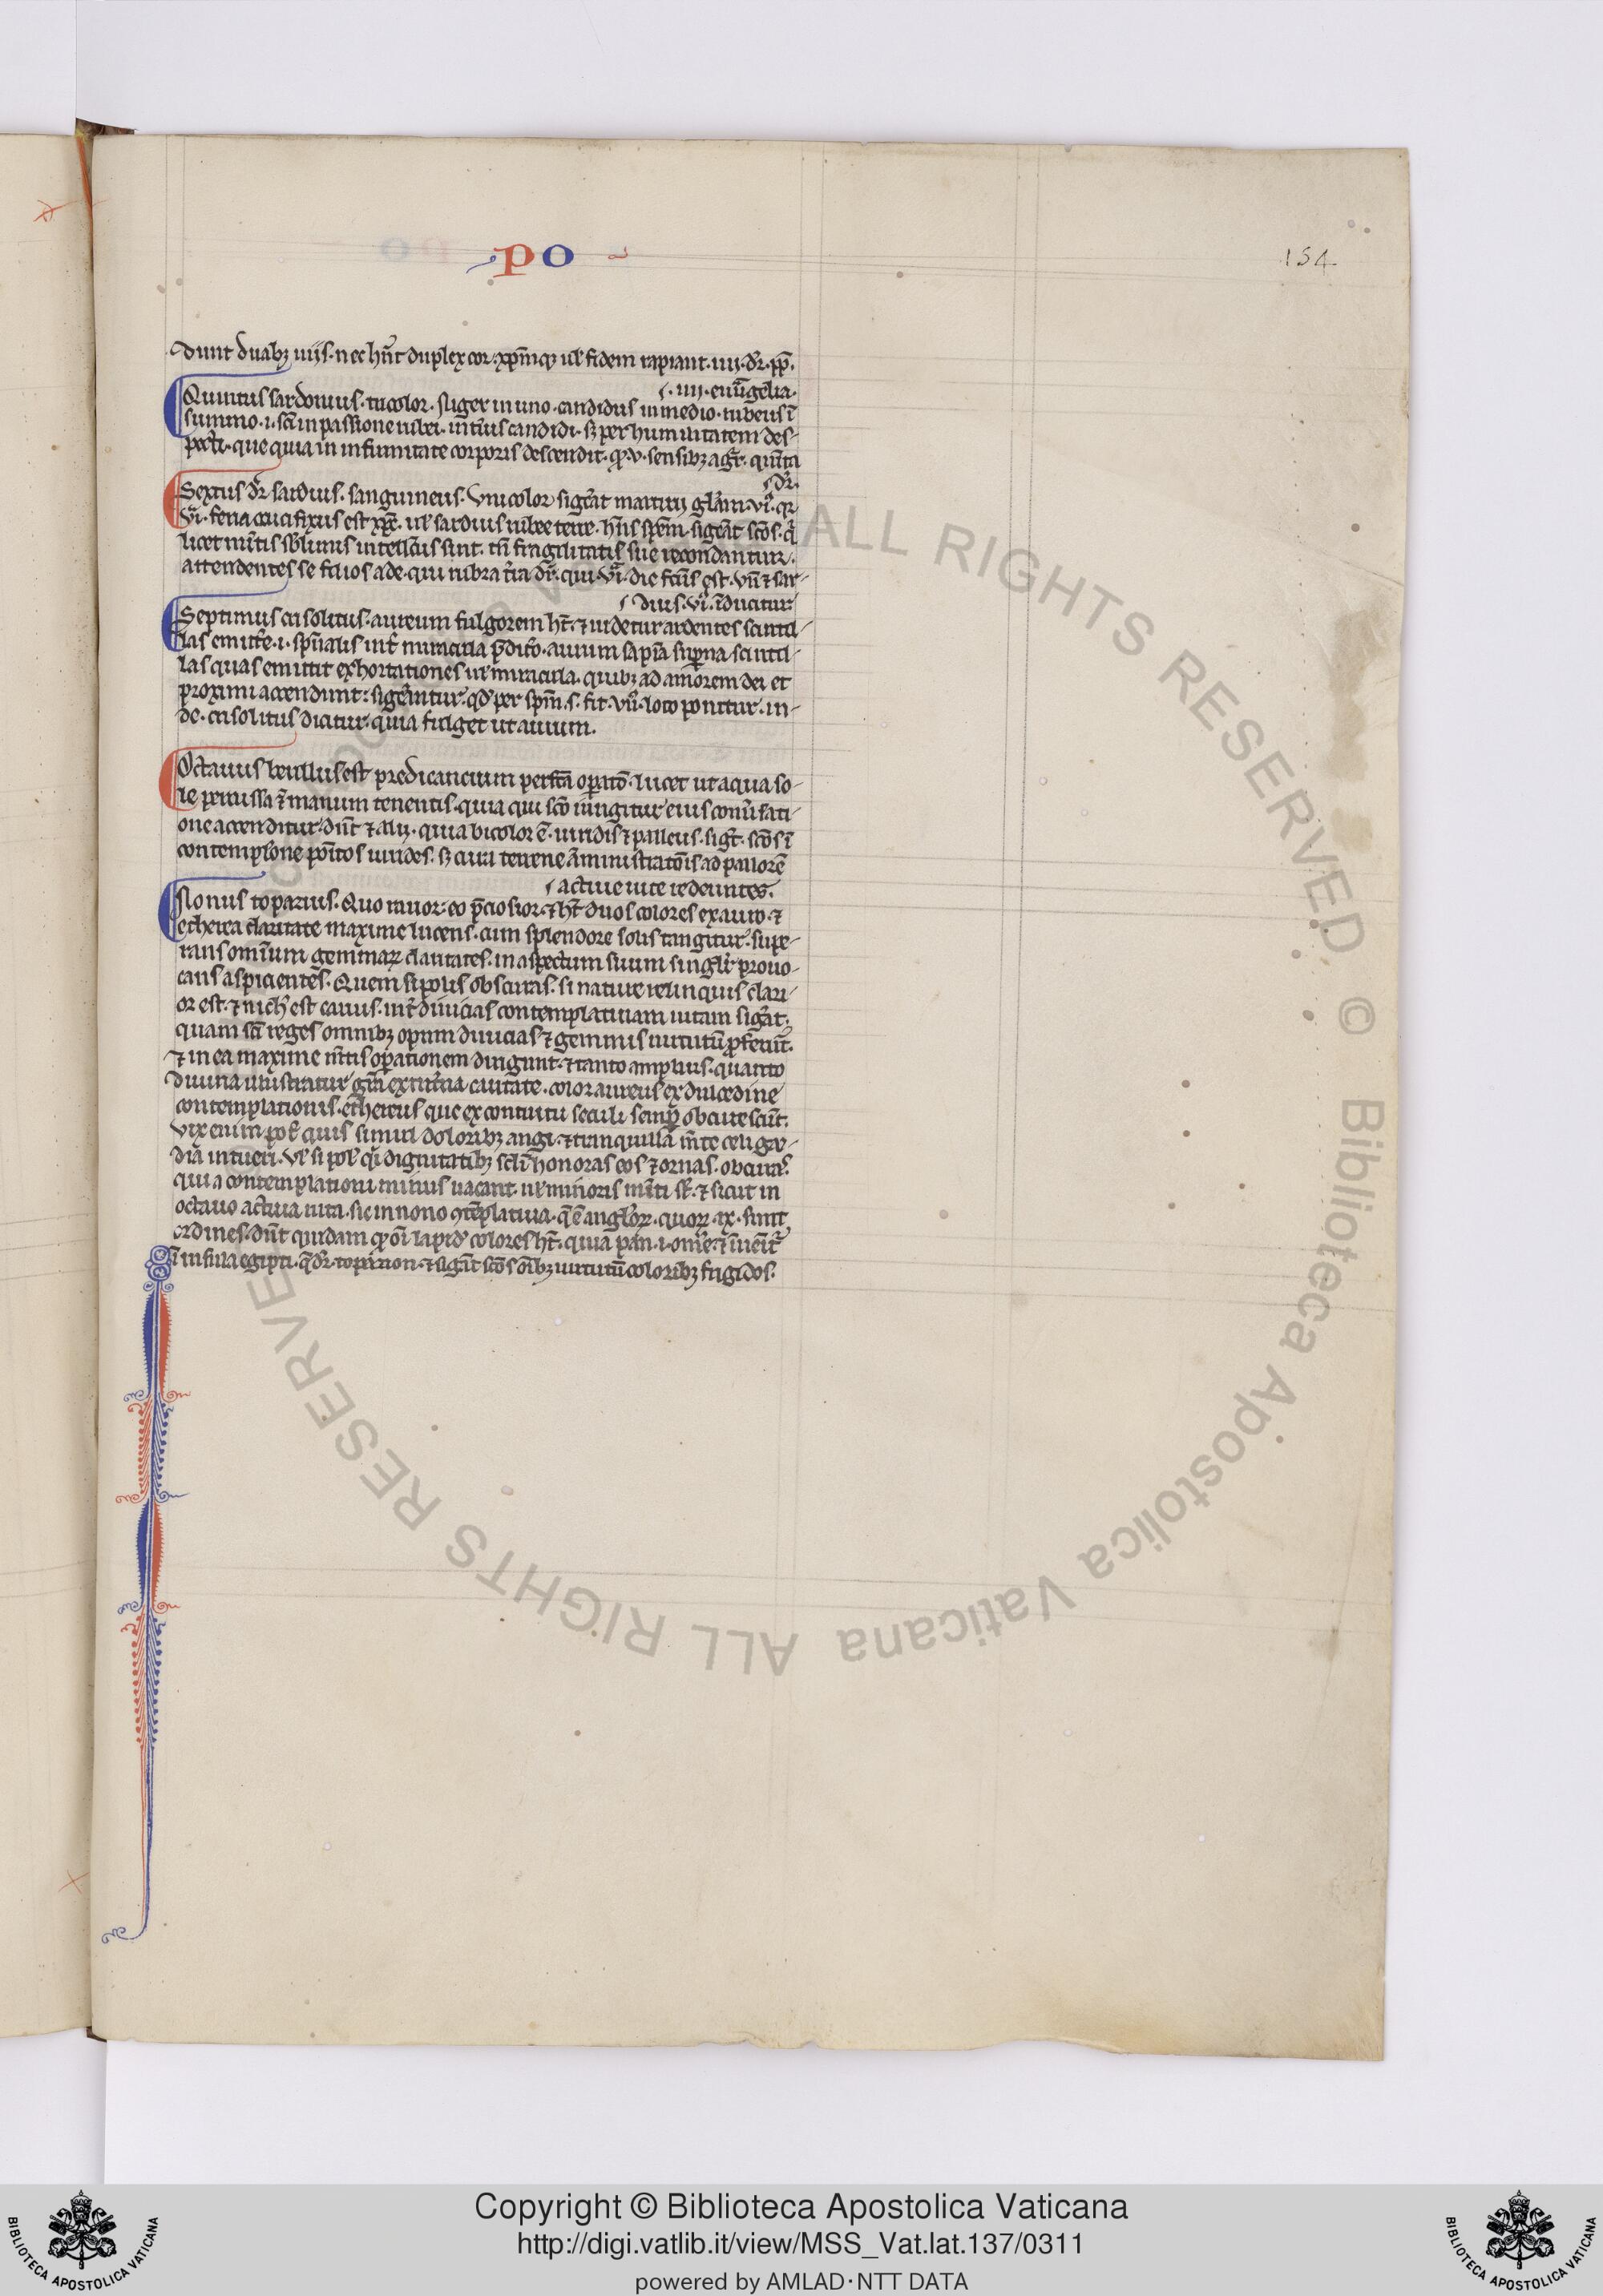 po
154
dunt duabꝫ uijs. nec hn̄t duplex cor. xp̄mqꝫ ul' fidem rapiant. iiij. dr̄. pp̄.
iiij. euu̅gelia.
Quintus sardonius. tricolor. niger in uno. candidus in medio. rubeus ī
summo. i. sc̄i in passione rubei. int̾ius candidi. sꝫ per humilitatem des-
pecti. que quia in infirmitate corporis descendit. v. sensibꝫ agr̄. quinta
dr̄.
Sextus dr̄ sardius. sanguineus. Vnicolor sig̅cat martirij gl'am. vi.
vi. feria crucifixus est xp̄c. ul' sardius rubee terre. hn̄s sp̄em. sig̅cat sc̄os.
licet m̄tis s̄blimis intell̄cus sint. tn̄ fragilitatis sue recordantur.
attendentes se filios ade. qui rubra t̄ra dr̄. qui vi. die fc̄us est. vn̄ ⁊ sar-
dius. vi. ī ducitur.
Septimus crisolitus. aureum fulgorem ht̄. ⁊ uidetur ardentes scintil-
las emitt̾e. i. sp̄ualis int̾ miracula p̄dic̄o. aurum sapīa superna scintil-
las quas emittit exhortationes ul' miracula. quibꝫ ad amorem dei et
proximi accendunt: sig̅cantur. qd̄ per sp̄m. s. fit. vii. loco ponitur. in-
de. crisolitus dicitur. quia fulget ut aurum.
Octauus berillus est predicancium perfc̄a op̄atō. lucet ut aqua so-
le percussa ⁊ manum tenentis. quia qui sc̄o iungitur eius conu̾sati-
one accenditur. dn̄t ⁊ alij. quia bicolor ē. uiridis ⁊ palleus. sig̅t. sc̄os ī
contempl̄one po̅itos uirides. sꝫ cura terrene āministratōis ad pallorē
actiue uite redeuntes.
Nonus topazius. Quo rarior. eo p̄ciosior. ⁊ ht̄ duos colores ex auro. ⁊
etherea claritate maxime lucens. cum splendore solis tangitur. supe-
rans omnium gemmaꝝ claritates. in aspectum suum singl'r prouo-
cans aspicientes. Quem si polis obscuras. si nature relinquis clari-
or est. ⁊ nich' est carius. int̾ diuicias contemplatiuam uitam sig̅cat.
quam sc̄i reges omnibꝫ opum diuicias ⁊ gemmis uirtutū p̄ferūt.
⁊ in ea maxime m̄tis op̄ationem dirigunt. ⁊ tanto amplius. quanto
diuina illustratur caritate. color aureus ex dulcedine
contemplationis. ethereus que ex contuitu seculi semp̄ obscurescūt.
Vix enim quis simul doloribꝫ angi. ⁊ tranquillā m̄te celi gau-
dia intueri. Vl' si pol' dignitatibꝫ scl'i honoras eos ⁊ ornas. obcuras.
quia contemplationi minus uacant. ul' minoris m̄iti s̄t. ⁊ sicut in
octauo actiua uita. sic in nono ꝯtēplatiua. q̄ ē angl'oꝝ. quoꝝ. ix. sunt
ordines. dn̄t quidam ꝙ oī lapid' colores ht̄. quia pan. i. om̄e. ⁊ īuēit̾
ī insula egipti. q̄ dr̄. topazion. ⁊ sig̅t sc̄os oībꝫ uirtutū coloribꝫ frigidos.
© Biblioteca Apostolica Vaticana ALL RIGHTS RESERVED
Copyright © Biblioteca Apostolica Vaticana
http://digi.vatlib.it/view/MSS_Vat.lat.137/0311
powered by AMLAD·NTT DATA
BIBLIOTECA APOSTOLICA VATICANA
BIBLIOTECA APOSTOLICA VATICANA